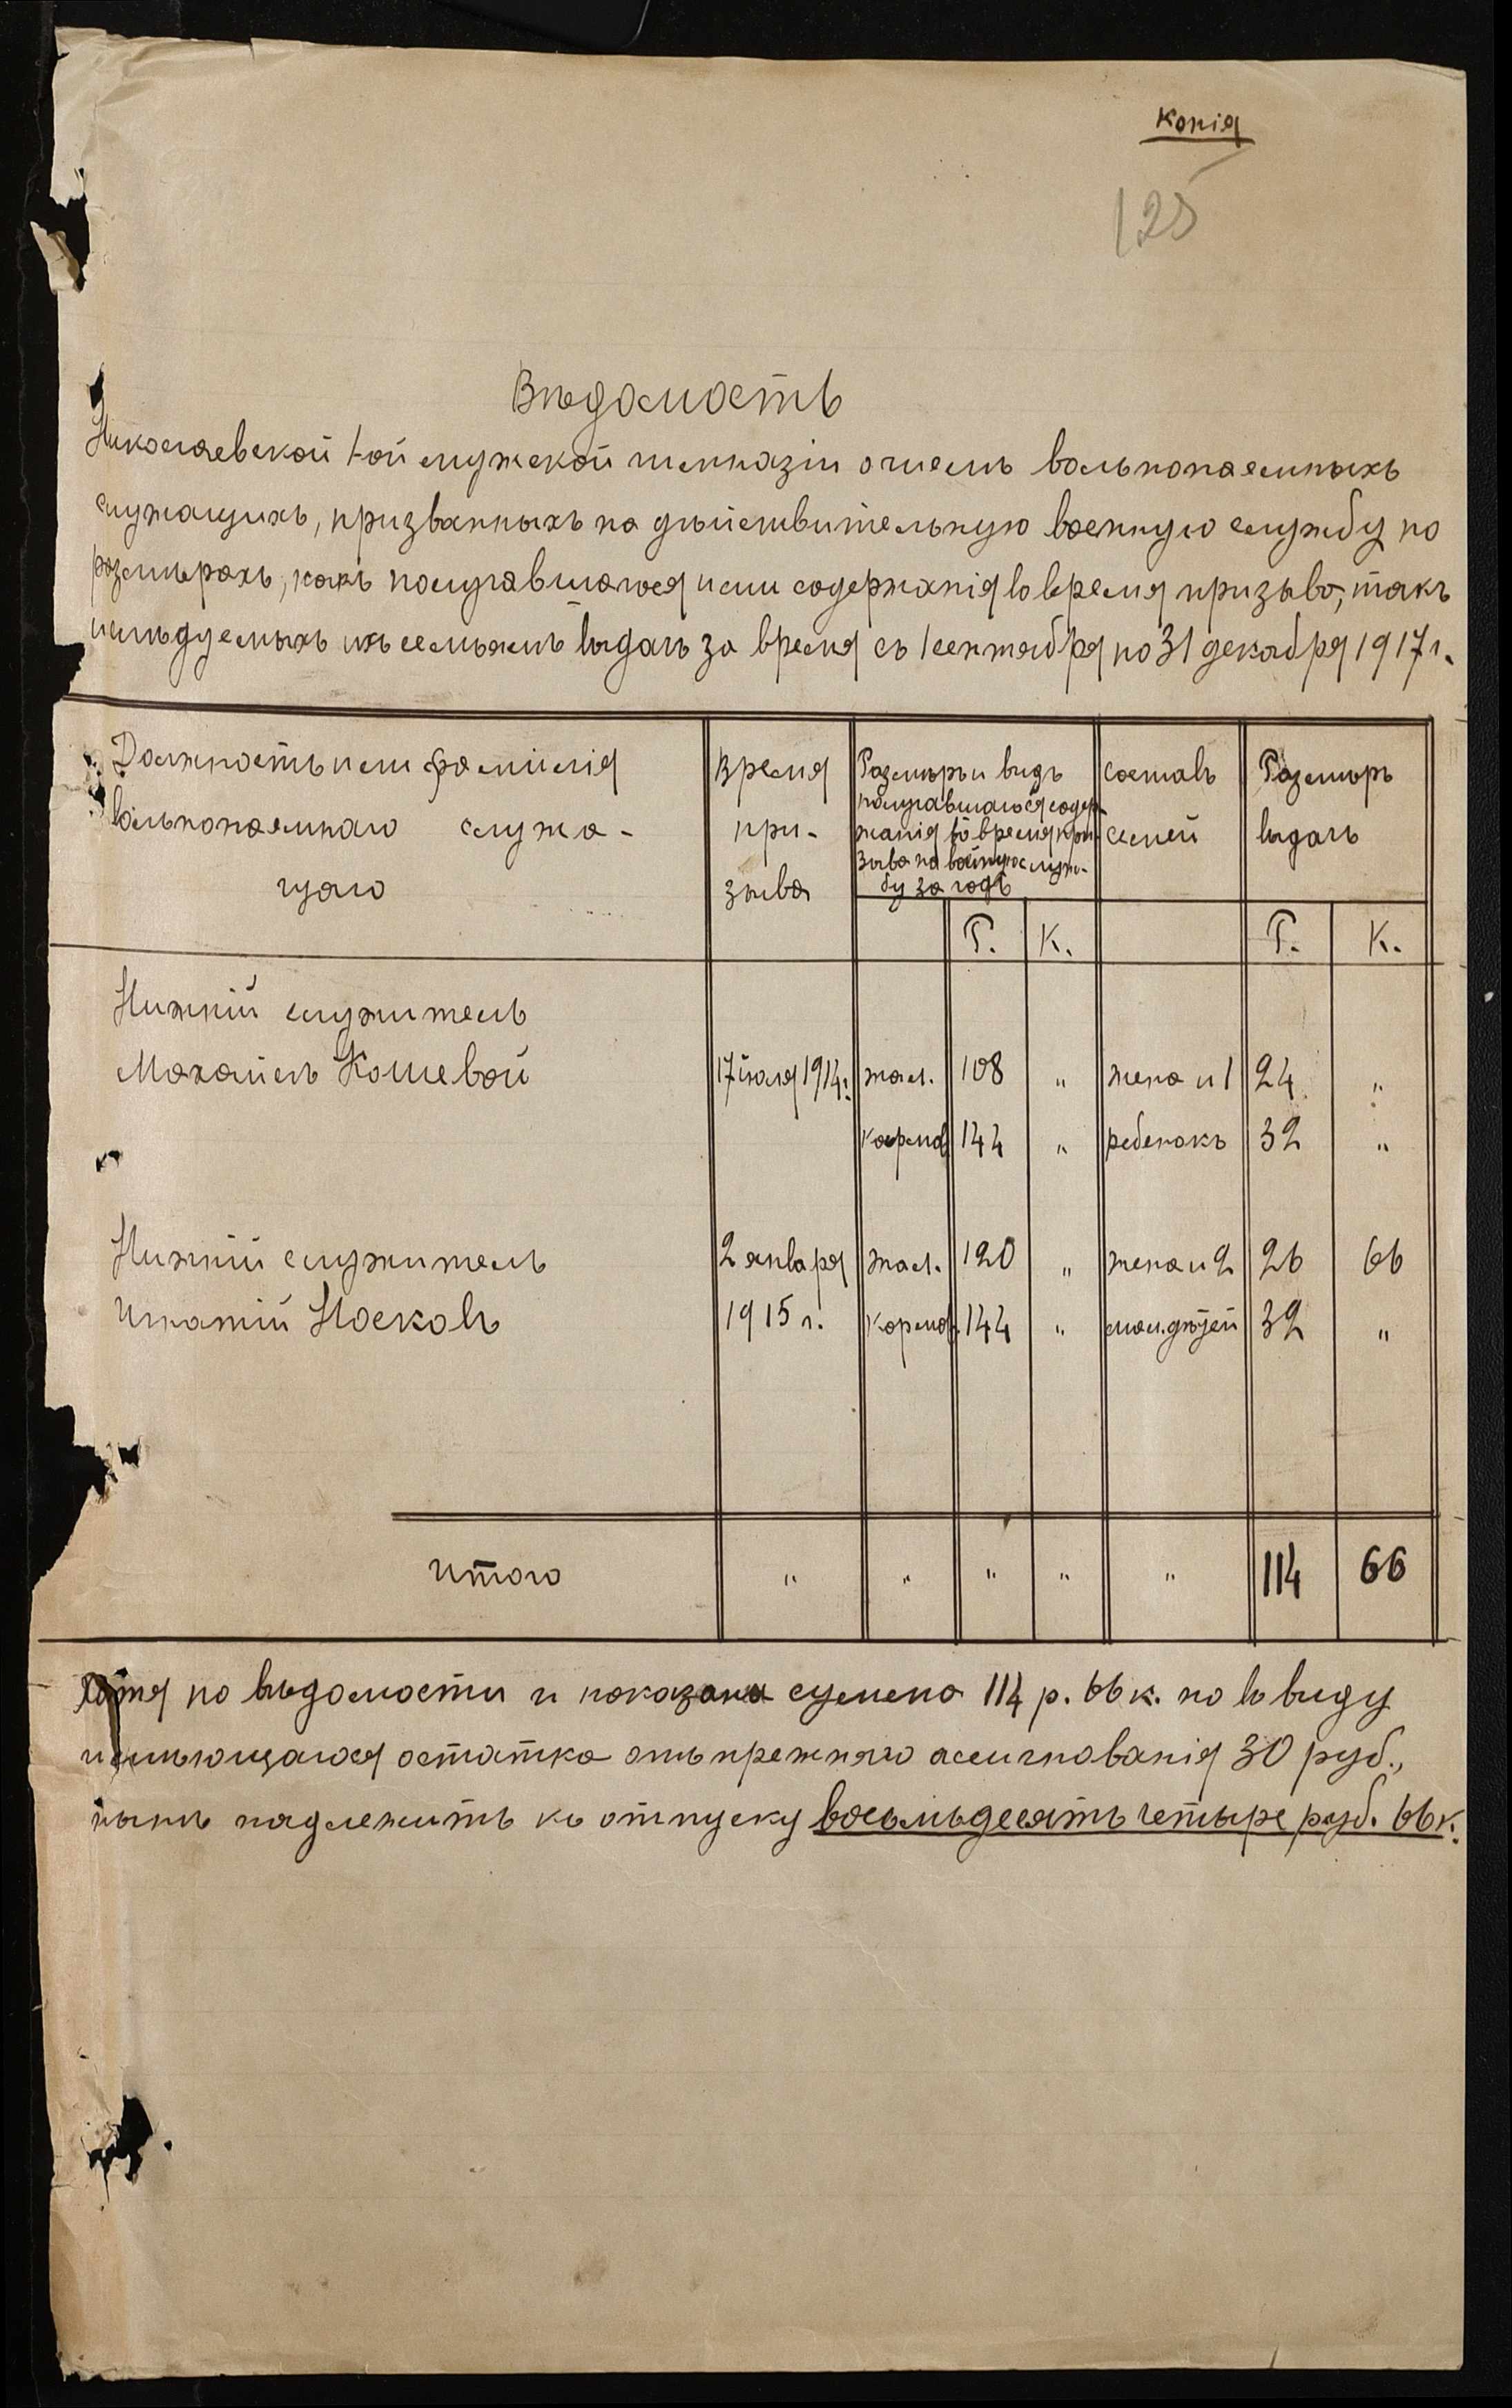 Копія
125
Вѣдомость
Николаевской 1-ой мужской гимназіи о числѣ вольнонаемныхъ
служащихъ, призванныхъ на дѣйствительную военную службу по
размѣрахъ, какъ получавшагося ими содержанія во время призыва, такъ
и слѣдуемыхъ ихъ семьямъ выдачъ за время съ 1 сентября по 31 декабря 1917 г.
Должность или фамилія
вольнонаемнаго служа-
щаго
Время
при-
зыва
Размѣръ и видъ
получавшагося содер-
жанія во время при-
зыва на войну служ-
бу за годъ
Составъ
семей
Размѣръ
выдачъ
Р. К. Р. К.
Нижній служитель
Михаилъ Кошевой 17 іюля 1914 г. жал. 108 " жена и 1 24 "
кормов. 144 " ребенокъ 32 "
Нижній служитель 2 января жал. 120 " жена и 2 26 66
Игнатій Носковъ 1915 г. кормов. 144 " мал. дѣтей 32 "
Итого " " " " " 114 66
Хотя по вѣдомости и показана сумма 114 р. 66 к. но въ виду
имѣющагося остатка отъ прежняго ассигнованія 30 руб.,
нынѣ надлежитъ къ отпуску восемьдесятъ четыре руб. 66 к.